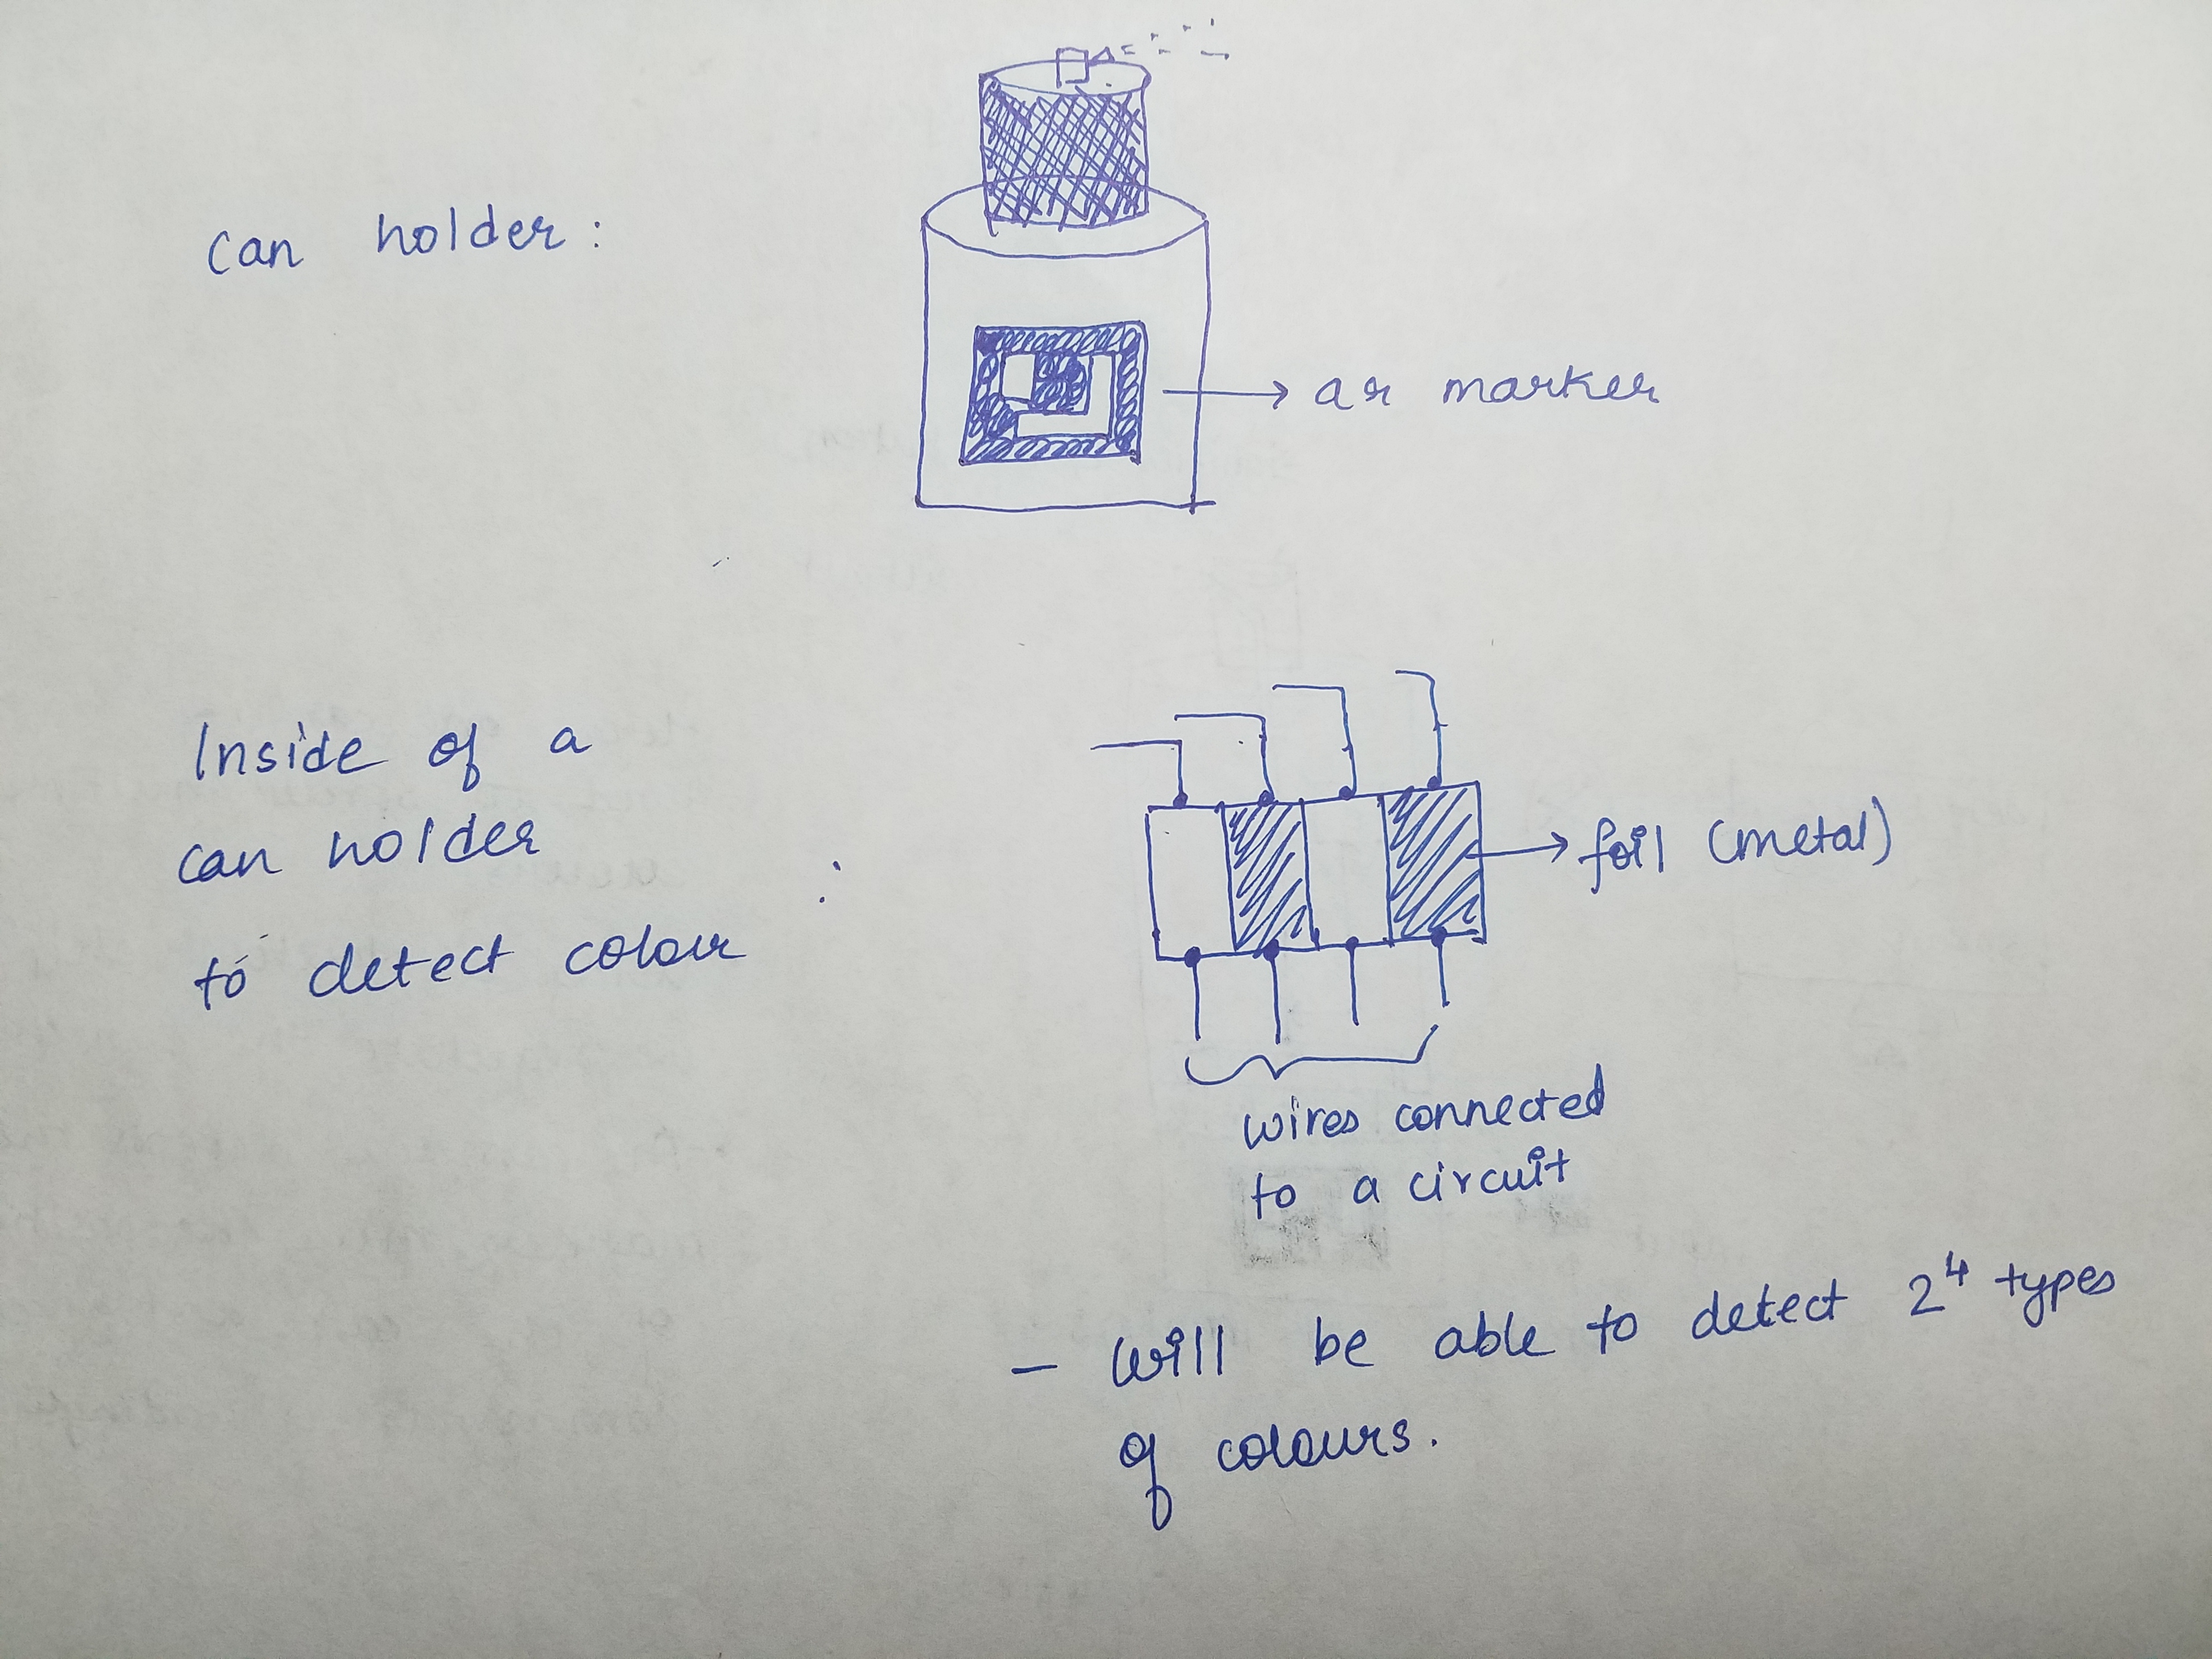 Can holder :
ar marker
Inside of a
can holder
to detect colour :
foil (metal)
wires connected
to a circuit
– Will be able to detect 2⁴ types
of colours.